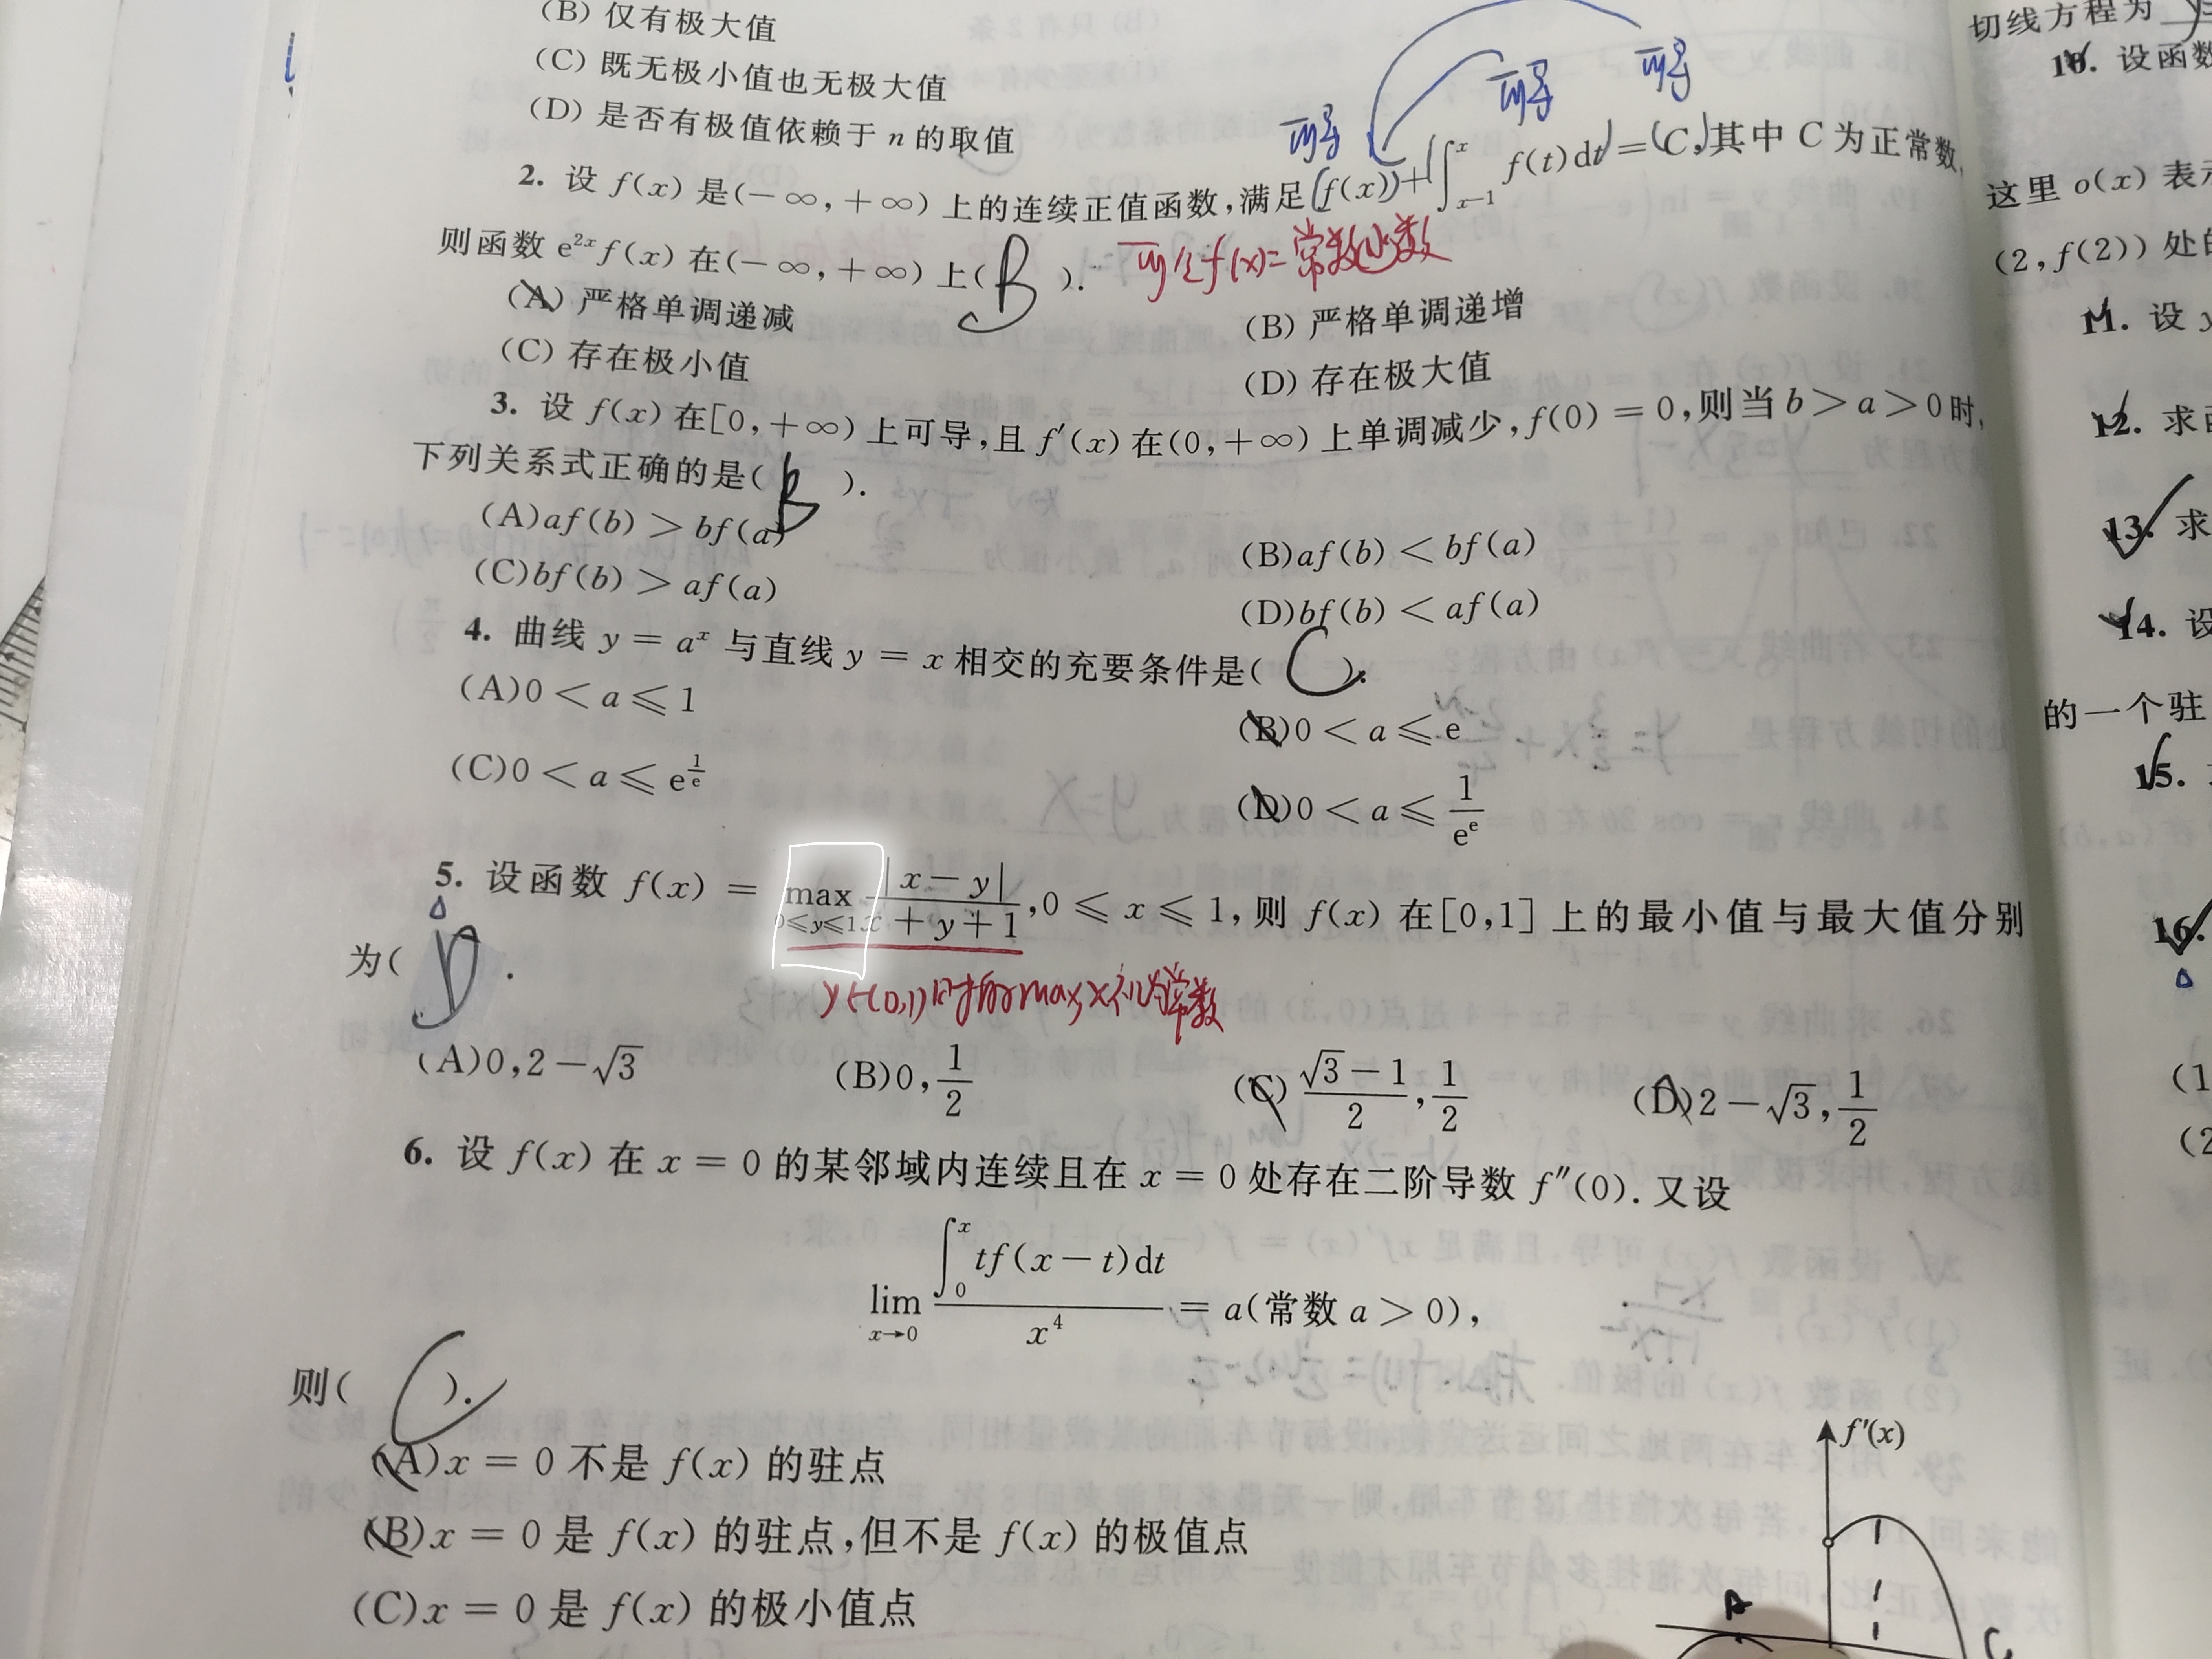 (B) 仅有极大值
(C) 既无极小值也无极大值
(D) 是否有极值依赖于 n 的取值
可导 可导 可导
2. 设 f(x) 是(-∞,+∞) 上的连续正值函数,满足 f(x)+∫_{x-1}^{x} f(t)dt=C,其中 C 为正常数,
则函数 e^{2x}f(x) 在(-∞,+∞) 上( B ).
f(x)=常数函数
(A) 严格单调递减
(B) 严格单调递增
(C) 存在极小值
(D) 存在极大值
3. 设 f(x) 在[0,+∞) 上可导,且 f′(x) 在(0,+∞) 上单调减少,f(0) = 0,则当 b > a > 0 时,
下列关系式正确的是( B ).
(A)af(b) > bf(a)
(B)af(b) < bf(a)
(C)bf(b) > af(a)
(D)bf(b) < af(a)
4. 曲线 y = a^x 与直线 y = x 相交的充要条件是( C ).
(A)0 < a ⩽ 1
(B)0 < a ⩽ e
(C)0 < a ⩽ e^{1/e}
(D)0 < a ⩽ 1/e^e
5. 设函数 f(x) = max_{0⩽y⩽1} |x-y|/(x+y+1),0 ⩽ x ⩽ 1,则 f(x) 在[0,1] 上的最小值与最大值分别
为( D .
(A)0,2-√3
(B)0,1/2
(C)(√3-1)/2,1/2
(D)2-√3,1/2
6. 设 f(x) 在 x = 0 的某邻域内连续且在 x = 0 处存在二阶导数 f″(0). 又设
lim_{x→0} ∫_0^x tf(x-t)dt / x^4 = a(常数 a > 0),
则( C ).
(A)x = 0 不是 f(x) 的驻点
(B)x = 0 是 f(x) 的驻点,但不是 f(x) 的极值点
(C)x = 0 是 f(x) 的极小值点
f′(x)
A
C
切线方程为
10. 设函数
这里 o(x) 表示
(2,f(2)) 处的
11. 设 y
12. 求函
13. 求
14. 设
的一个驻
15.
16.
(1
(2